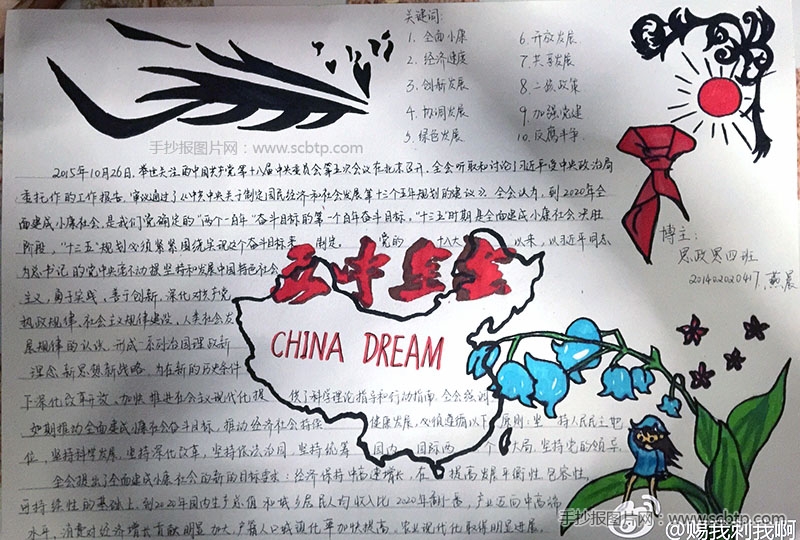 关键词:
1. 全面小康
2. 经济速度
3. 创新发展
4. 协调发展
5. 绿色发展
6. 开放发展
7. 共享发展
8. 二孩政策
9. 加强党建
10. 反腐斗争
手抄报图片网：www.scbtp.com
2015年10月26日，举世关注的中国共产党第十八届中央委员会第五次会议在北京召开，全会听取和讨论了习近平受中央政治局
委托作的工作报告，审议通过了《中共中央关于制定国民经济和社会发展第十三个五年规划的建议》。全会认为，到2020年全
面建成小康社会，是我们党确定的"两个一百年"奋斗目标的第一个百年奋斗目标，"十三五"时期是全面建成小康社会决胜
阶段，"十三五"规划必须紧紧围绕实现这个奋斗目标来 制定。 党的 十八大 以来，以习近平同志
为总书记的党中央 坚持和发展中国特色社会
主义，勇于实践，善于创新，深化对共产党
执政规律、社会主义规律建设、人类社会发
展规律的认识，形成一系列治国理政新
理念新思想新战略，为在新的历史条件
下深化改革开放、加快推进社会主义现代化提 供了科学理论指导和行动指南。全会强调
如期推动全面建成小康社会奋斗目标，推动经济社会持续 健康发展，必须遵循以下原则：坚 持人民主体地
位、坚持科学发展、坚持深化改革、坚持依法治国、坚持统筹 国内 国际两 个 大局、坚持党的领导。
全会提出了全面建成小康社会的新的目标要求：经济保持中高速增长，在 提高发展平衡性、包容性、
可持续性的基础上，到2020年国内生产总值和城乡居民人均收入比2020年翻一番，产业迈向中高端
水平，消费对经济增长贡献明显加大，户籍人口城镇化率加快提高，农业现代化取得明显进展。
CHINA DREAM
博主：
思政思四班
201402020417
手抄报图片网：www.scbtp.com
@赐我刺我啊